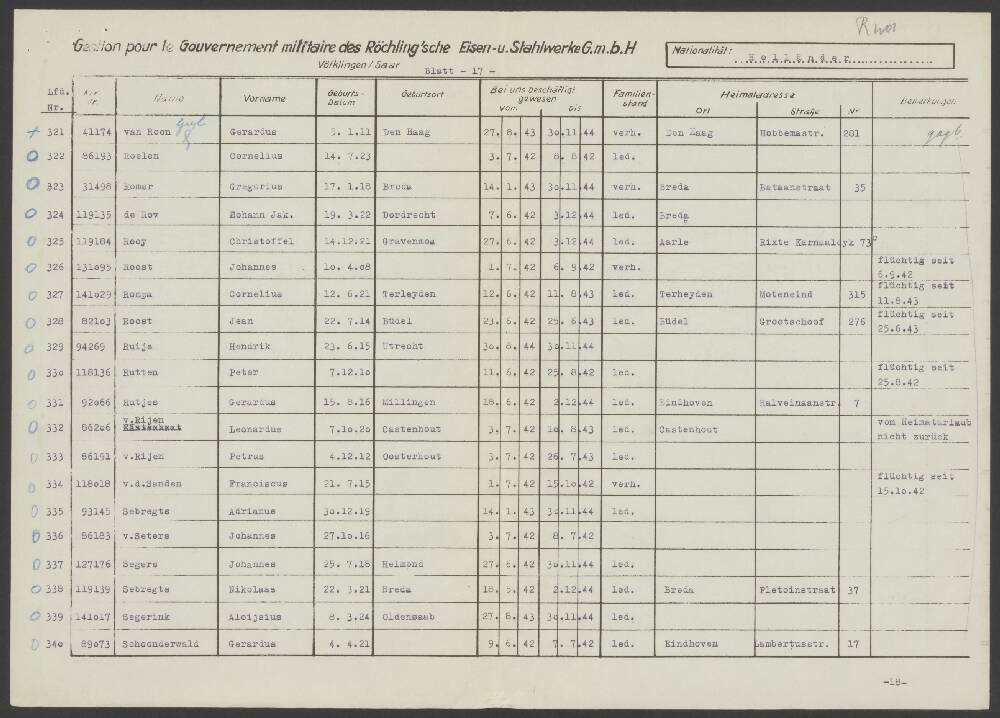 Gestion pour le Gouvernement militaire des Röchling'sche Eisen-u. Stahlwerke G.m.b.H
Völklingen / Saar
Blatt - 17 -
Nationalität: Holländer
Lfd. Nr. Name Vorname Geburts-Datum Geburtsort Bei uns beschäftigt gewesen vom bis Familien-stand Heimatadresse Ort Straße Nr Bemerkungen
321 41174 van Roon Gerardus 5. 1.11 Den Haag 27. 8. 43 30.11.44 verh. Den Haag Hobbemastr. 281
322 86193 Roelen Cornelius 14. 7.23 3. 7. 42 8. 8 42 led.
323 31498 Romer Gregorius 17. 1.18 Breda 14. 1. 43 30.11.44 verh. Breda Bataanstraat 35
324 119135 de Rov Johann Jak. 19. 3.22 Dordrecht 7. 6. 42 3.12.44 led. Breda
325 119184 Rooy Christoffel 14.12.21 Gravenmoa 27. 6. 42 3.12.44 led. Aarle Rixte Karnaaldyk 73
326 131095 Roost Johannes 10. 4.08 1. 7. 42 6. 9.42 verh. flüchtig seit 6.9.42
327 141029 Rompa Cornelius 12. 6.21 Terleyden 12. 6. 42 11. 8.43 led. Terheyden Moteneind 315 flüchtig seit 11.8.43
328 82103 Roost Jean 22. 7.14 Büdel 23. 6. 42 25. 6.43 led. Büdel Grootschoof 276 flüchtig seit 25.6.43
329 94269 Ruijs Hendrik 23. 6.15 Utrecht 30. 8. 44 30.11.44
330 118136 Rutten Peter 7.12.10 11. 6. 42 25. 8.42 led. flüchtig seit 25.8.42
331 92066 Rutjes Gerardus 15. 8.16 Millingen 18. 6. 42 2.12.44 led. Eindhoven Halveinsanstr. 7
332 86206 v.Rijen Leonardus 7.10.20 Castenhout 3. 7. 42 10. 8.43 led. Castenhout vom Heimaturlaub nicht zurück
333 86191 v.Rijen Petrus 4.12.12 Oosterhout 3. 7. 42 26. 7.43 led.
334 118018 v.d.Sanden Franciscus 21. 7.15 1. 7. 42 15.10.42 verh. flüchtig seit 15.10.42
335 93145 Sebregts Adrianus 30.12.19 14. 1. 43 30.11.44 led.
336 86183 v.Seters Johannes 27.10.16 3. 7. 42 8. 7.42
337 127176 Segers Johannes 25. 7.18 Helmond 27. 6. 42 30.11.44 led.
338 119139 Sebregts Nikolaas 22. 3.21 Breda 18. 5. 42 2.12.44 led. Breda Pletoinstraat 37
339 141017 Segerink Aloijsius 8. 3.24 Oldensaab 27. 8. 43 30.11.44 led.
340 89073 Schoonderwald Gerardus 4. 4.21 9. 6. 42 7. 7.42 led. Eindhoven Lambertusstr. 17
-18-